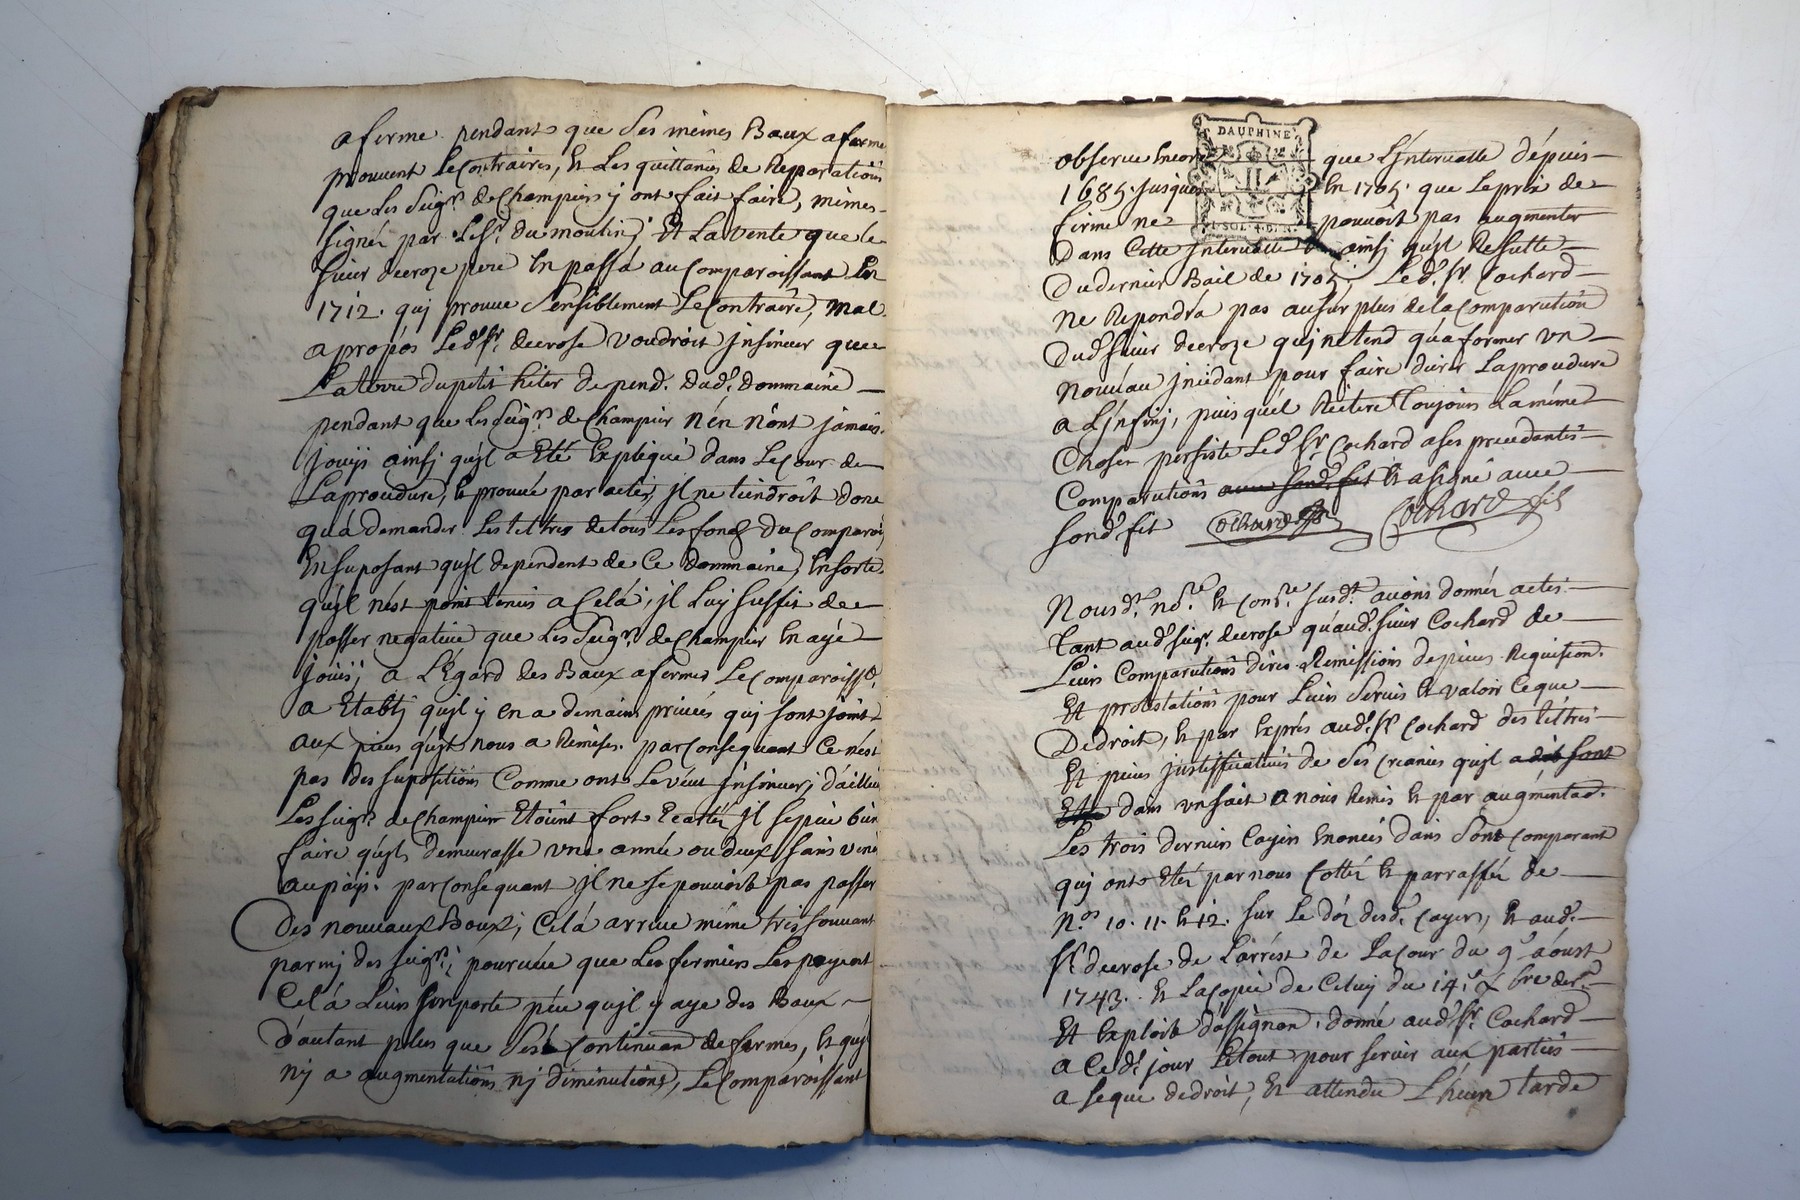 a ferme pendant que ses mêmes Baux a ferme
prouuent le Contraires, et Les quittances de Reparations
que Les Seigrs de Champier y ont fait faire, mêmes
signés par Le Sr du moulin, Et La vente que le
sieur decroze pere En passa au Comparoissant En
1712. quj prouue sensiblement Le Contraire, mal
a propos Led Sr. decrose voudroit jnsinuer que
La terre du petit hiler depend. dud. Dommaine
pendant que Les Seigrs de Champier n'en n'ont jamais
jouÿs ainsj qu'jl a Eté Expliqué dans Le Cour de
La procedure, et prouué par actes, jl ne tiendroit donc
qu'a demander Les tittres de tous Les fonds du Comparoi
En suposant qu'jl dependent de Ce dommaine, En sorte
qu'jl n'est point tenus a Celá, jl Luy suffit de
passer negatiue que Les Seigrs de Champier En ayé
jouiï, a L'Egard des Baux a fermes Le Comparoisst.
a Etablj qu'jl y en a demains priuées quj sont joint
aux pieces qu'jl nous a Remises. par Consequant Ce n'est
pas des supositions Comme ont Le veut jnsinuer, d'ailleu
Les Seigrs de Champier Etoiint fort Ecartés jl se peu bien
faire qu'jls demeurasse vne année ou deux sans venir
au päys. par Consequant jl ne se pouuoit pas passer
Des nouueaux Baux, Celá arriue méme tres souuant
parmj des seigrs, pouruúe que Les fermiers Les payent
Celá Leurs jmporte péu qu'jl y aye des Baux
d'autant plus que ses Continuan de fermes, et qu'jl
nj a augmentations nj diminutions, Le Comparoissant
DAUPHINE
observe Encore que L'jnterualle dépuis
1685. jusques En 1705. que Le prix de
ferme ne pouuoit pas augmenter
Dans Cette jnterualle ainsj qu'jl Resulte
Du dernier Bail de 1705, Led. Sr Cochard
ne Repondrá pas au surplus de la Comparution
Dud. Sieur decroze quj ne tend qu'a former vn
nouuéau jncidant pour faire durer La procedure
a L'jnfinj, puis qu'el Reitere toujours La méme
Chose, persiste Led Sr Cochard a ses precedantes
Comparutions auec sond. fit Et a signé auec
sond. fit Cochard Cochard fils
Nousd. nore. Et Conre. susd. auions donnés actes
tant aud. seigr. decrose qu'aud. sieur Cochard de
Leurs Comparutions dires Remissions depieces Requision.
Et protestations pour Leurs seruir Et valoir Ce que
De droit, Et par Exprés aud. Sr Cochard des tittres
Et pieces justifficatiues de ses Creances qu'jl a dit sont
Etté dans vn sait a nous Remis Et par augmentad.
Les trois derniers Cayers Enoncés dans Sont Comparant
quj ont Etés par nous Cottés Et parraffés de
Nos 10. 11. Et 12. sur Le dos desd. Cayers, Et aud.
Sr. decrose de L'arrést de La Cour du 9e aoust
1743. Et La Copie de Celuy du 14e xbre der.
Et Exploit d'assignan. donné aud. Sr. Cochard
a Ced. jour Le tout pour seruir aux parties
a Se que de droit, Et attendu L'heure tarde